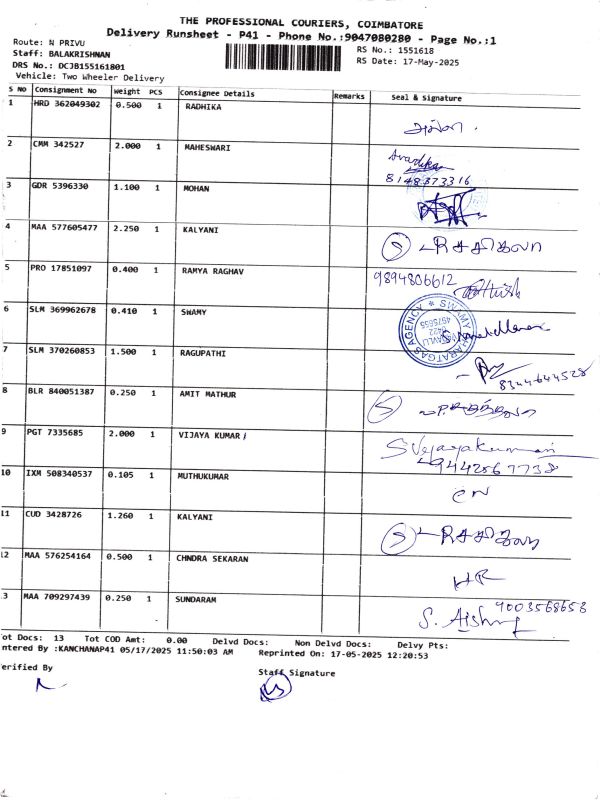 THE PROFESSIONAL COURIERS, COIMBATORE
Delivery Runsheet - P41 - Phone No.:9047080280 - Page No.:1
Route: N PRIVU
RS No.: 1551618
Staff: BALAKRISHNAN
RS Date: 17-May-2025
DRS No.: DCJB155161801
Vehicle: Two Wheeler Delivery
S NO Consignment No Weight PCS Consignee Details Remarks Seal & Signature
1 HRD 362049302 0.500 1 RADHIKA
2 CMM 342527 2.000 1 MAHESWARI
Avantika
8148373316
3 GDR 5396330 1.100 1 MOHAN
4 MAA 577605477 2.250 1 KALYANI
5 PRO 17851097 0.400 1 RAMYA RAGHAV 9894806612
6 SLM 369962678 0.410 1 SWAMY
SWAMY BHARATGAS AGENCY
7 SLM 370260853 1.500 1 RAGUPATHI
8344644528
8 BLR 840051387 0.250 1 AMIT MATHUR
9 PGT 7335685 2.000 1 VIJAYA KUMAR /
S Vejayakumar
9442567738
10 IXM 508340537 0.105 1 MUTHUKUMAR
11 CUD 3428726 1.260 1 KALYANI
12 MAA 576254164 0.500 1 CHNDRA SEKARAN
3 MAA 709297439 0.250 1 SUNDARAM
9003568653
ot Docs: 13 Tot COD Amt: 0.00 Delvd Docs: Non Delvd Docs: Delvy Pts:
ntered By :KANCHANAP41 05/17/2025 11:50:03 AM Reprinted On: 17-05-2025 12:20:53
erified By Staff Signature